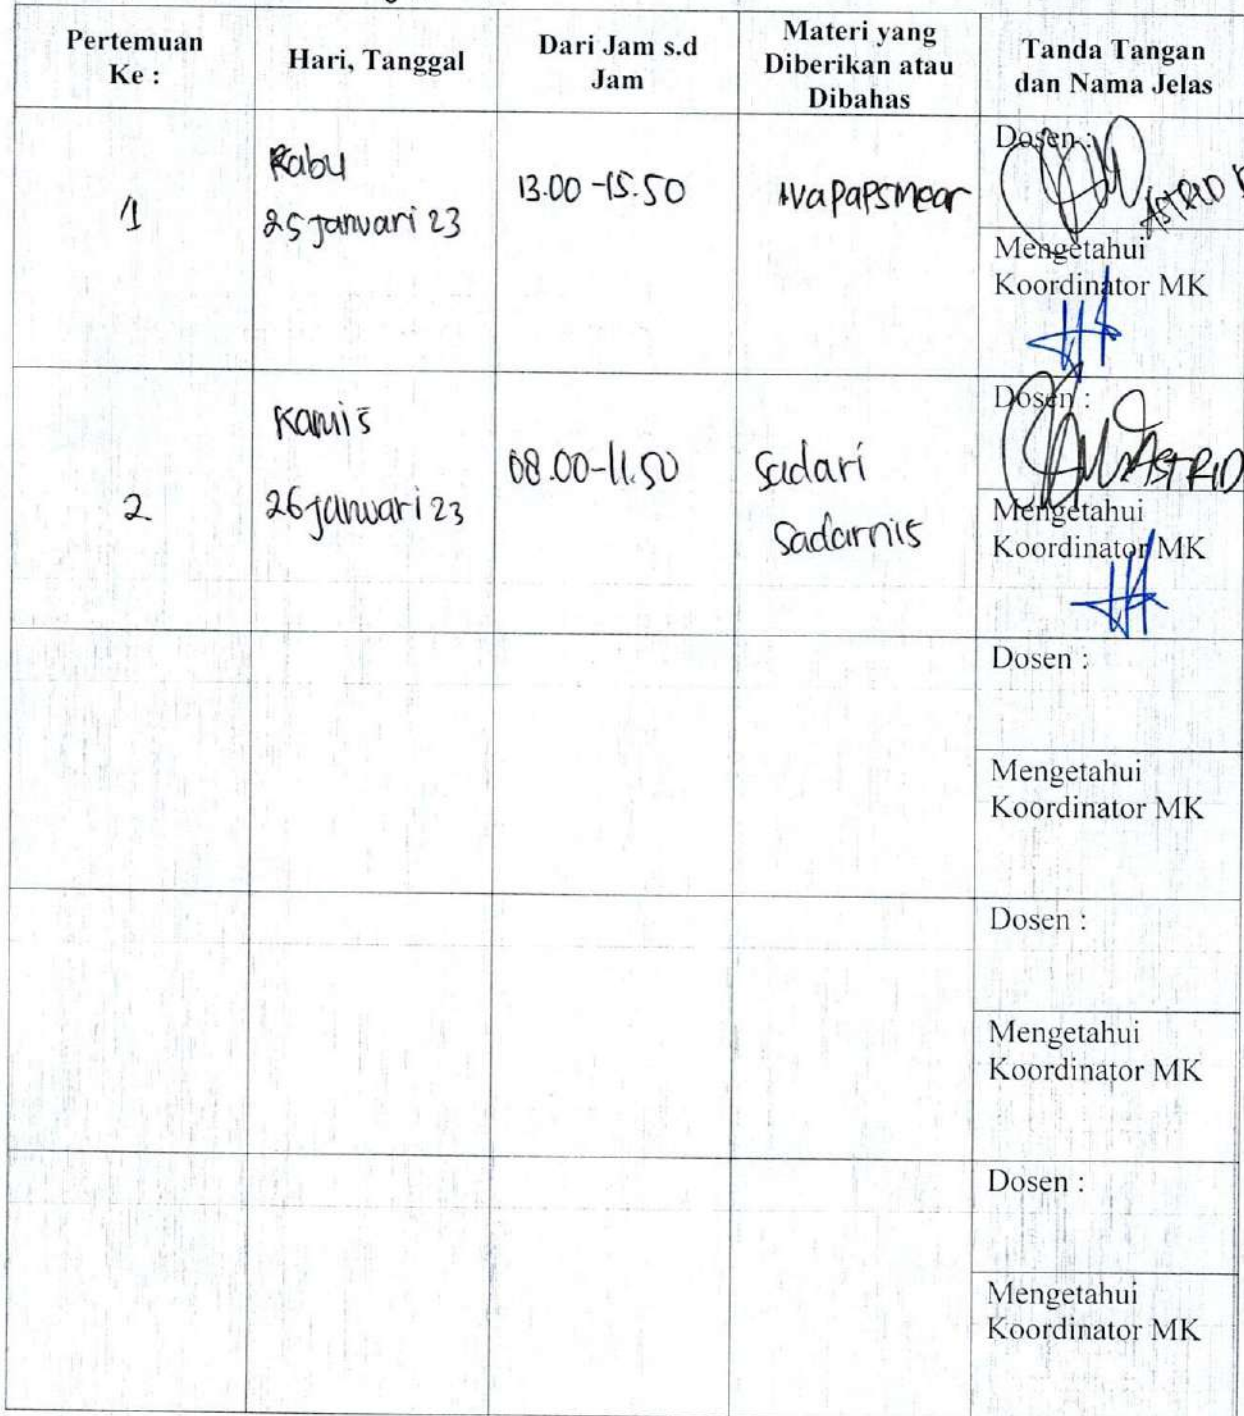 Pertemuan
Ke :
Hari, Tanggal
Dari Jam s.d
Jam
Materi yang
Diberikan atau
Dibahas
Tanda Tangan
dan Nama Jelas
1
Rabu
25 Januari 23
13.00 - 15.50
Iva papsmear
Dosen :
ASTRID
Mengetahui
Koordinator MK
2
Kamis
26 Januari 23
08.00-11.50
Sadari
Sadarnis
Dosen :
ASTRID
Mengetahui
Koordinator MK
Dosen :
Mengetahui
Koordinator MK
Dosen :
Mengetahui
Koordinator MK
Dosen :
Mengetahui
Koordinator MK